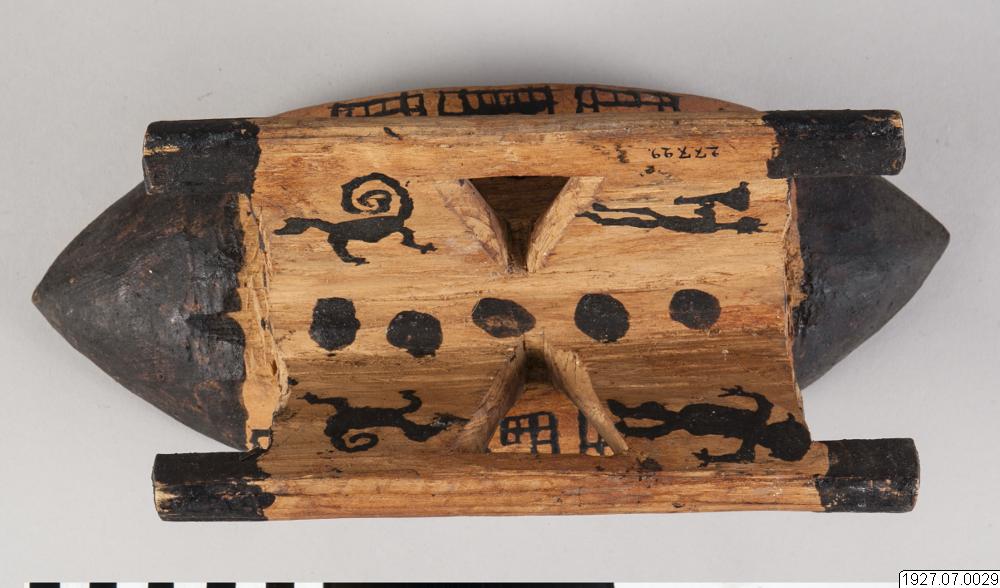 27729.
1927.07.0029